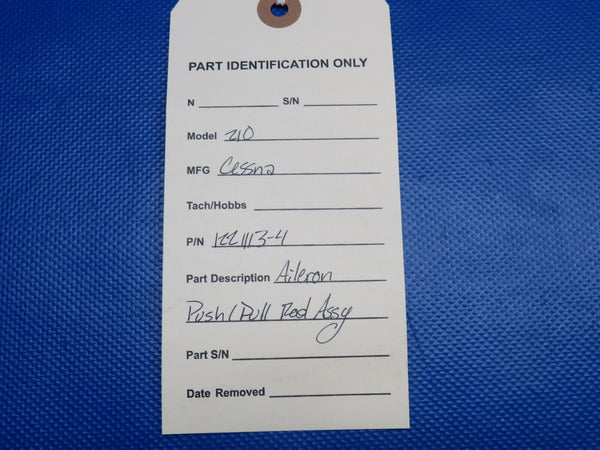 PART IDENTIFICATION ONLY
N ____________ S/N ____________
Model 210
MFG Cessna
Tach/Hobbs ____________
P/N 1221113-4
Part Description Aileron
Push/Pull Rod Assy
Part S/N ____________
Date Removed ____________